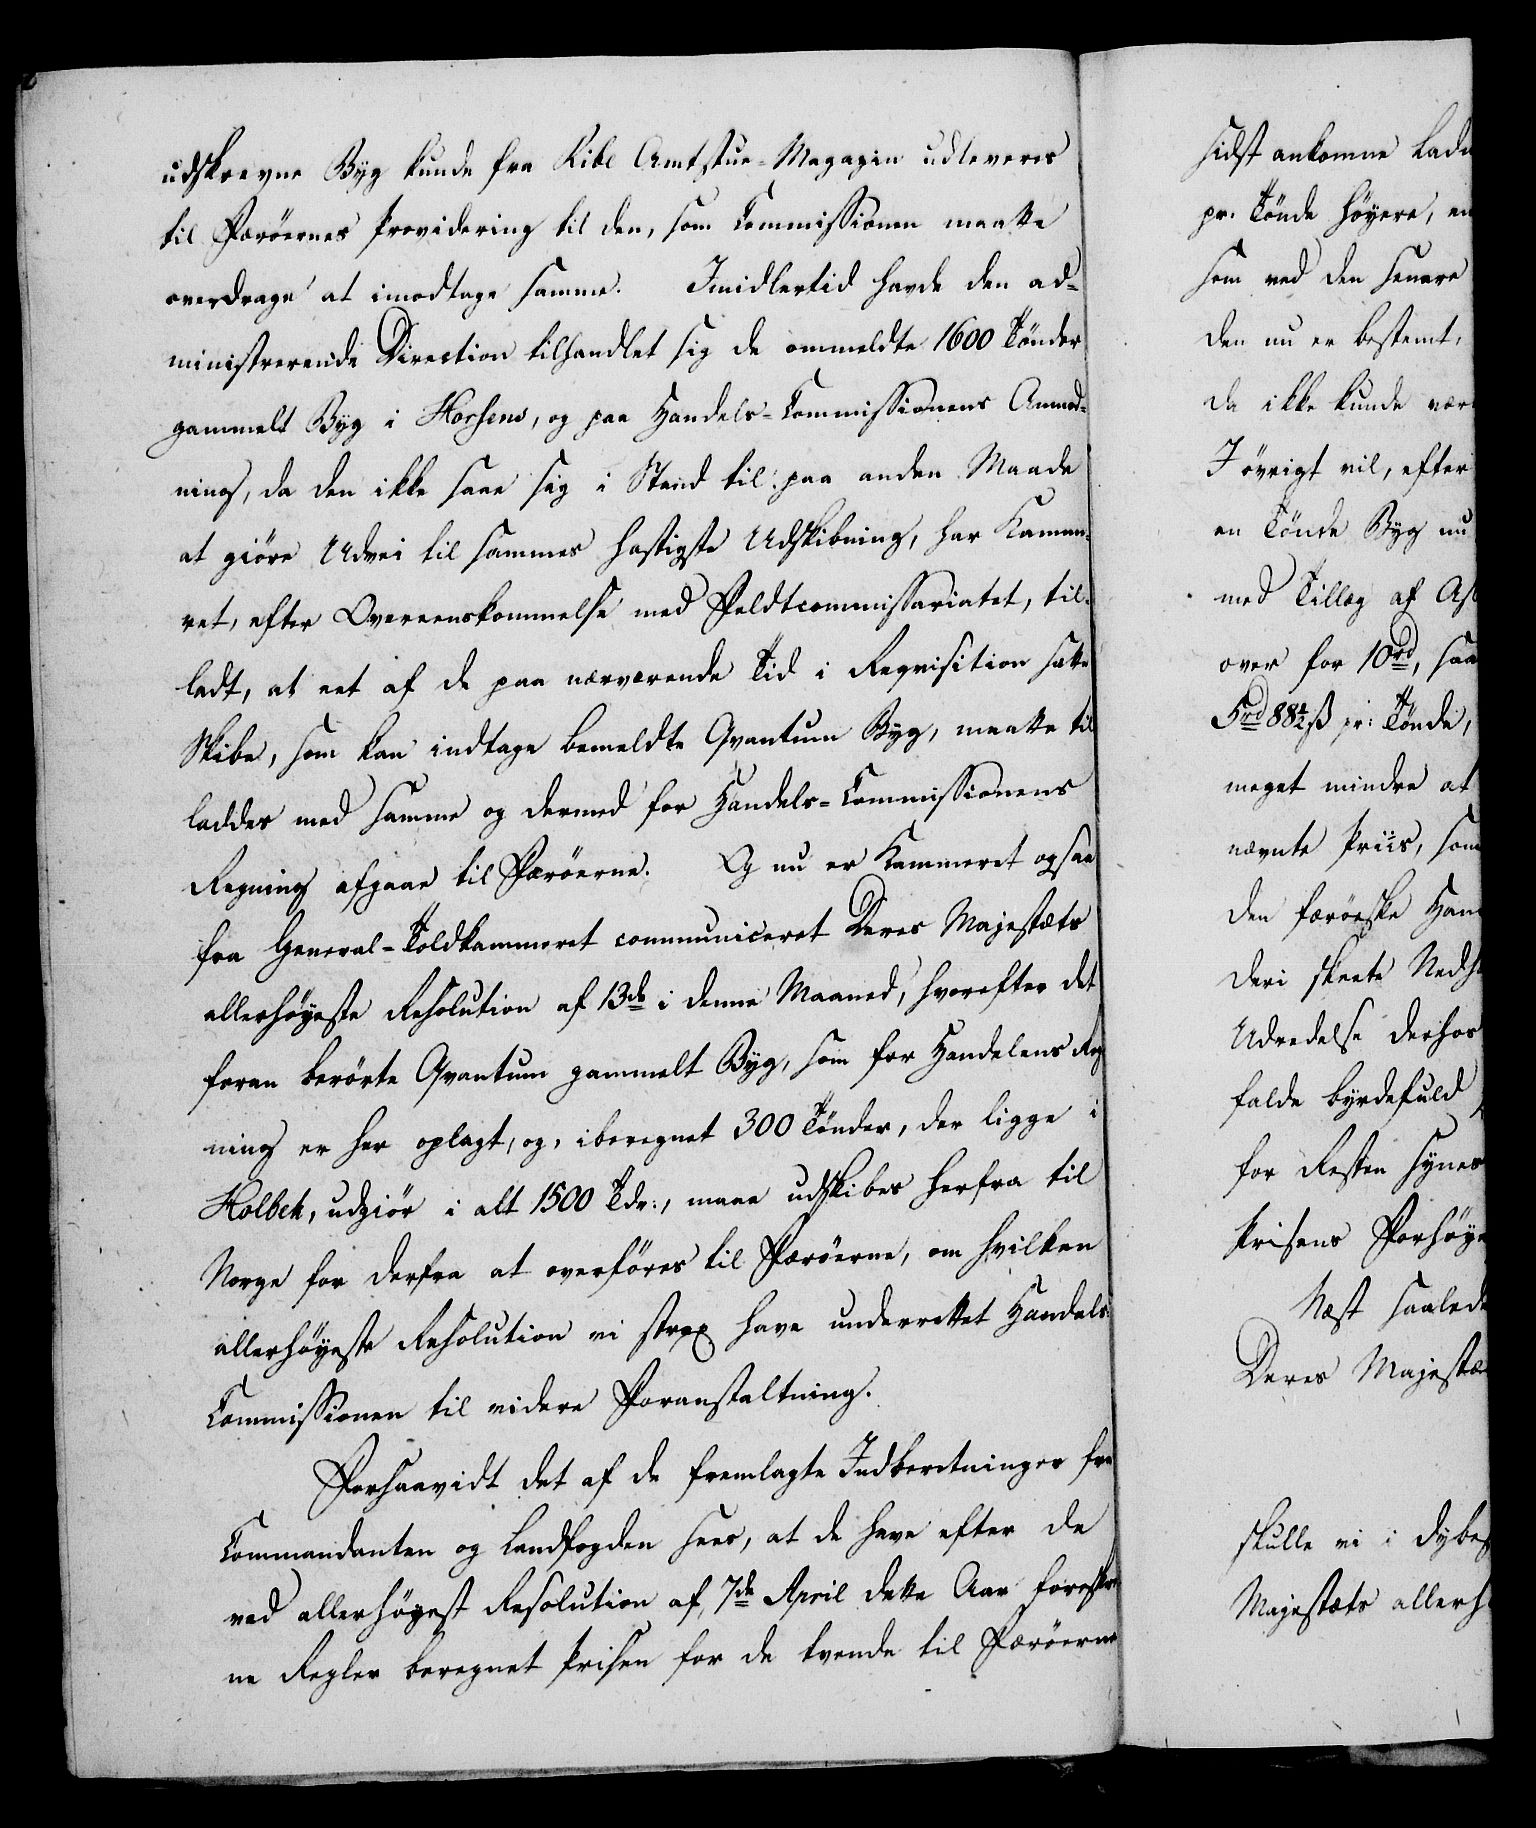 udskrevne Byg kunde fra Ribe Amtstue-Magazin udleveres
til Færöernes Providering til den, som Commissionen maatte
overdrage at imodtage samme. Imidlertid havde den ad-
ministrerende Direction tilhandlet sig de ommeldte 1600 Tönder
gammelt Byg i Horsens, og paa Handels-Commissionens Anmod-
ning, da den ikke saae sig i Stand til paa anden Maade
at giöre Udvei til sammes hastigste Udskibning, har Kamme-
ret, efter Overeenskommelse med Feldtcommissariatet, til-
ladt, at eet af de paa nærværende Tid i Reqvisition satte
Skibe, som kan indtage bemeldte Qvantum Byg, maatte til
laddes med samme og dermed for Handels-Commissionens
Regning afgaae til Færöerne. Og nu er Kammeret ogsaa
fra General-Toldkammeret communiceret Deres Majestæts
allerhöyeste Resolution af 13de i denne Maaned, hvorefter det
foran berörte Qvantum gammelt Byg, som for Handelens Reg
ning er her oplagt, og, iberegnet 300 Tönder, der ligge i
Holbek, udgiör i alt 1500 Tdr:, maae udskibes herfra til
Norge for derfra at overföres til Færöerne, om hvilken
allerhöyeste Resolution vi strax have underrettet Handels-
Commissionen til videre Foranstaltning.
Forsaavidt det af de fremlagte Indberetninger fra
Commandanten og Landfogden sees, at de have efter de
ved allerhöyest Resolution af 7de April dette Aar foreskrev
ne Regler beregnet Prisen for de tvende til Færöerne
sidst ankomne Ladn
pr. Tönde höyere, en
som ved den senere
den nu er bestemt,
da ikke kunde vær
I övrigt vil, efter
en Tönde Byg nu
med Tillæg af As
over for 10rd, saa
5rd 88½ß pr: Tönde,
meget mindre at
nævnte Priis, som
den færöeske Han
deri skeete Neds
Udredelse derhos
falde byrdefuld
for Resten synes
Prisens Forhöye
Næst saalede
Deres Majestæ
skulle vi i dybes
Majestæts allerh